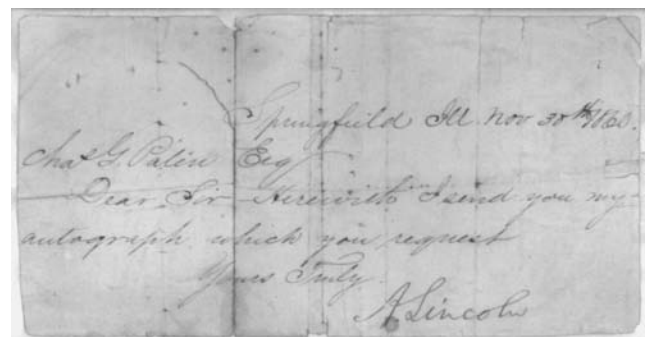 Springfield Ill Nov 30th 1860.
Chas G. Palin Esq
Dear Sir Herewith I send you my
autograph which you request
Yours Truly
A Lincoln